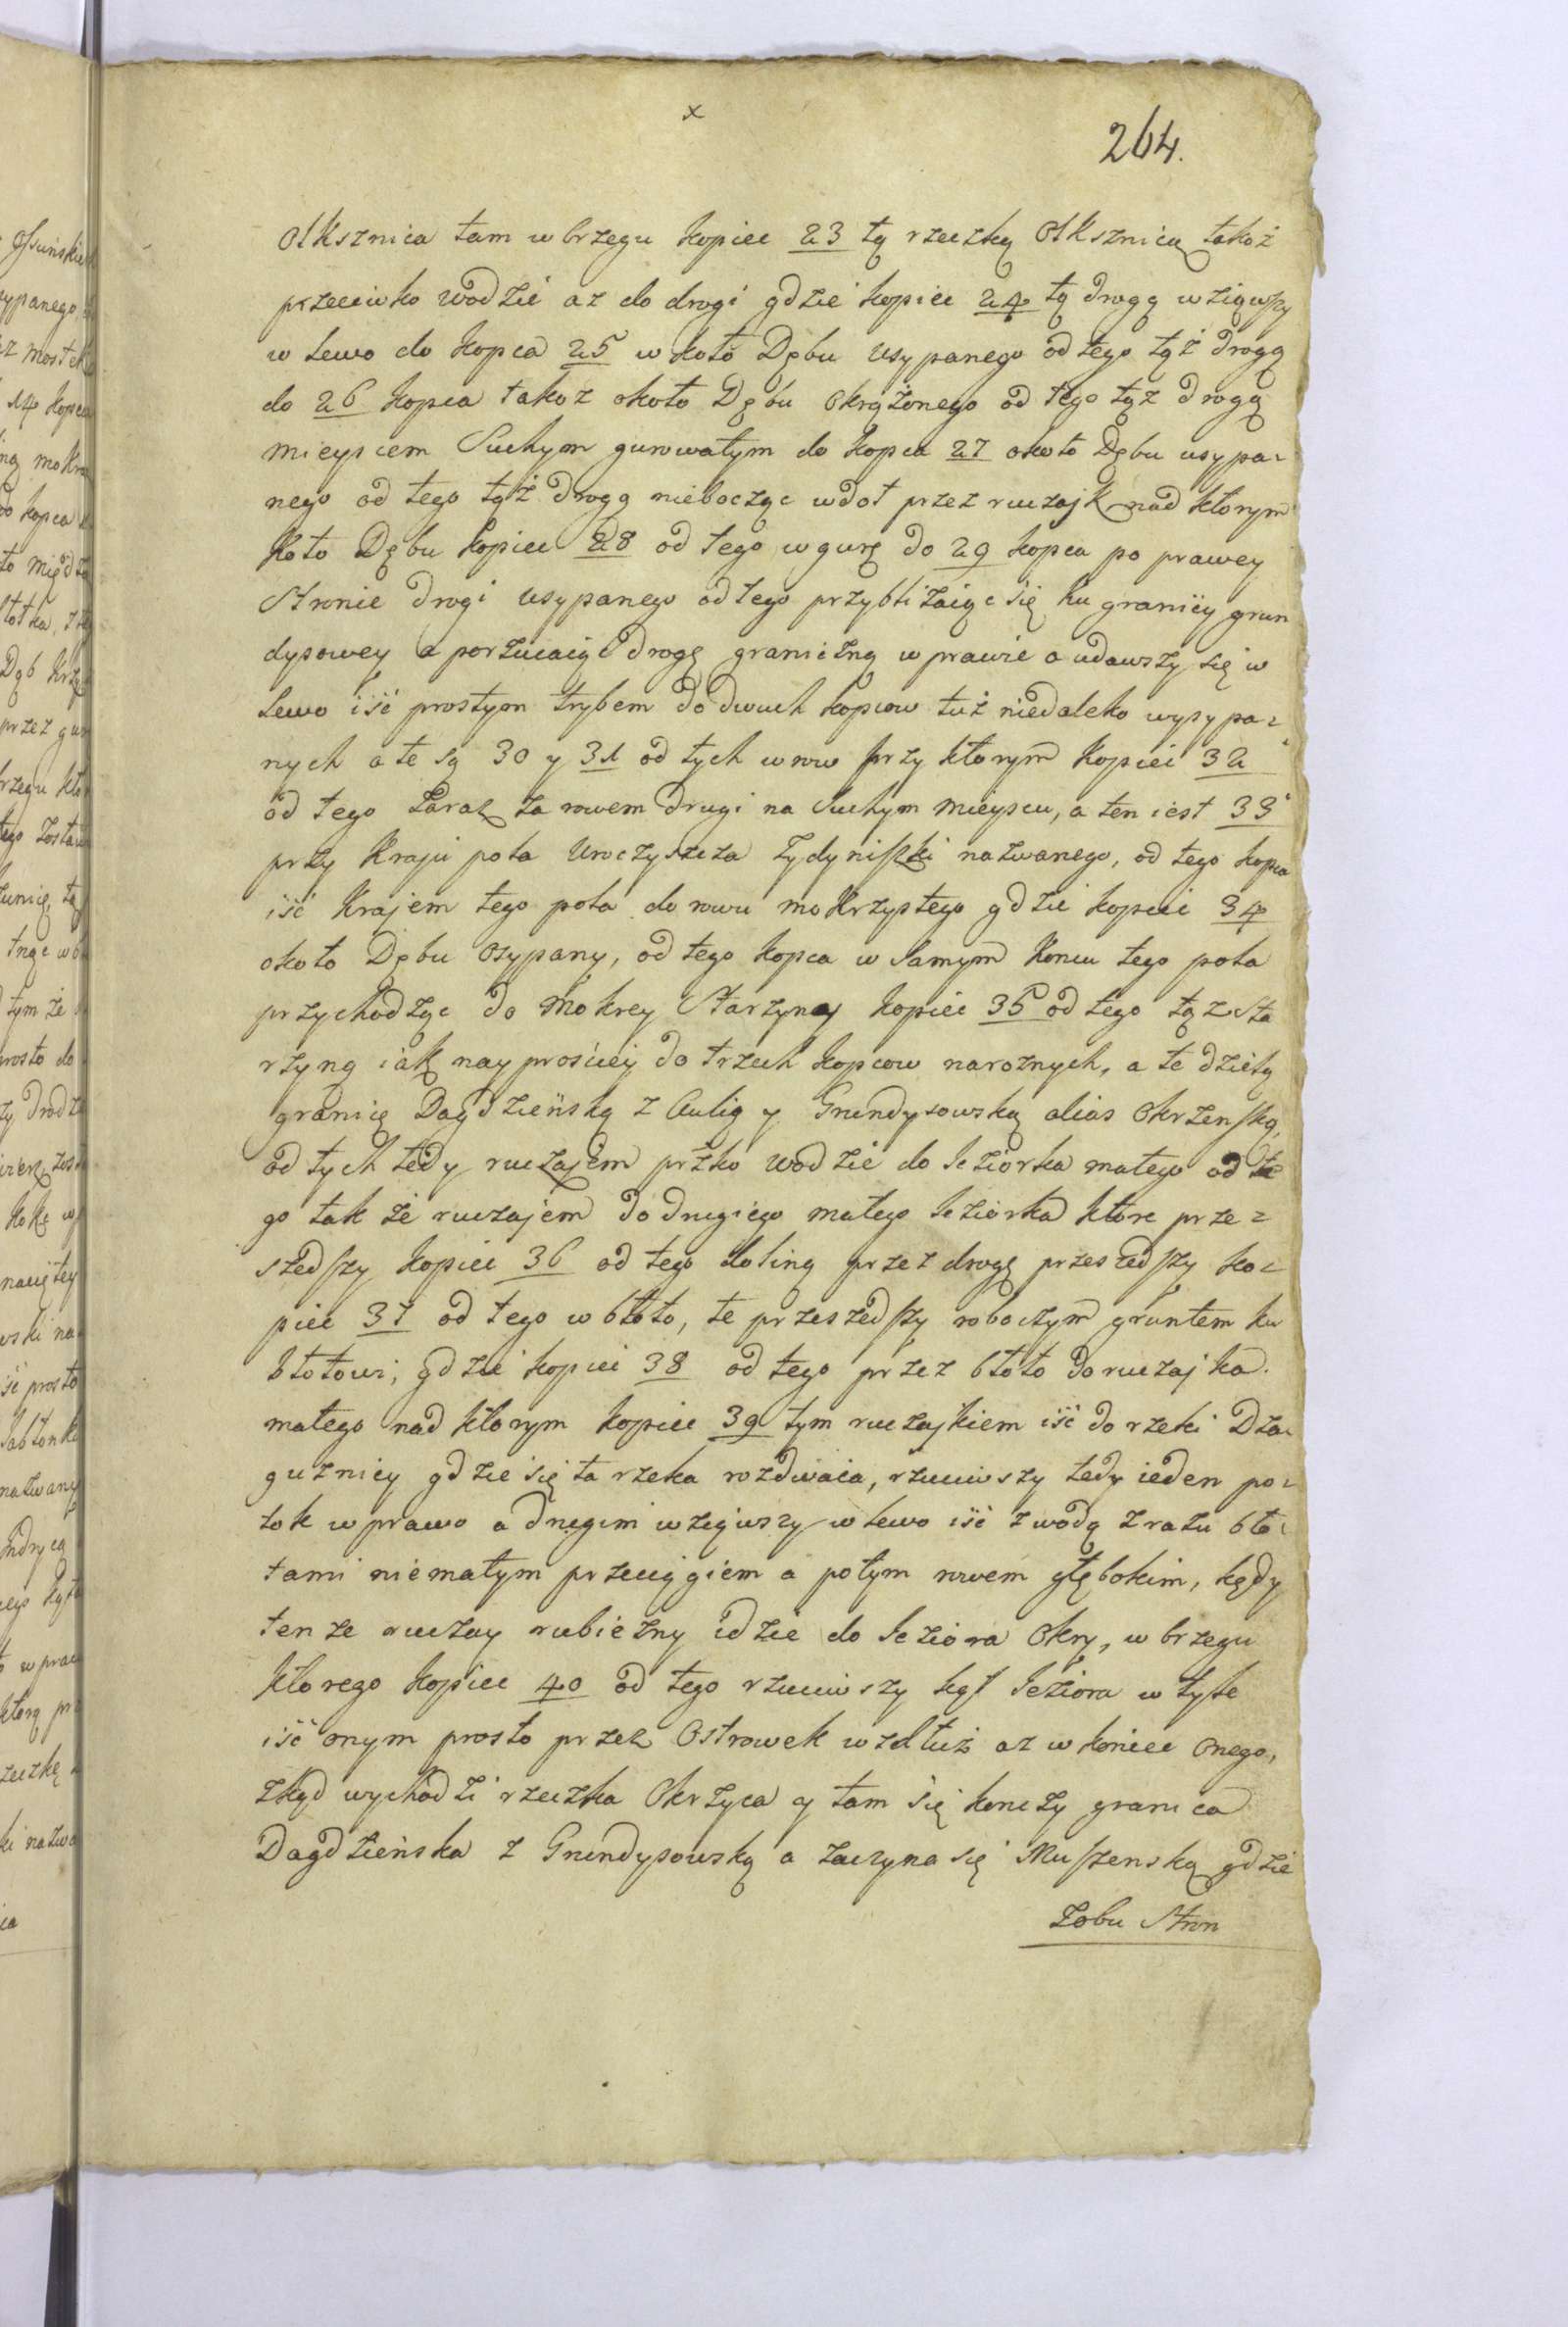 x
264.
Olksznica tam w brzegu kopiec 23 tą rzeczką Olksznicą takoż
przeciwko wodzie az do drogi gdzie kopiec 24 tą drogą wziąwszy
w lewo do kopca 25 w koło Dębu usypanego od tego tąż drogą
do 26 kopca takoz około Dębu okrążonego od tego tąż drogą
mieyscem Suchym gurowatym do kopca 27 około Dębu usypa-
nego od tego tąż drogą niebocząc wdoł przez ruczajk nad ktorym
koło Dębu kopiec 28 od tego w gurę do 29 kopca po prawey
Stronie drogi usypanego od tego przybliżaiąc się ku graniey grun
dysowey a porzucaiąc drogę graniczną w prawie a udawszy się w
lewo iść prostym trybem do dwuch kopcow tuż niedaleko wysypa-
nych a te są 30 y 31 od tych w row przy ktorym kopiec 32
od tego zaraz za rowem drugi na Suchym mieyscu, a ten iest 33
przy kraju pola Uroczyszcza Zydyniszki nazwanego, od tego kopca
iść krajem tego pola do rowu mokrzystego gdzie kopiec 34
około Dębu osypany, od tego kopca w Samym koncu tego pola
przychodząc do mokrey Starzyny kopiec 35 od tego tąz Sta
rzyną iak nayprościey do trzech kopcow naroznych, a te dzielą
granicę Dagdzieńską z Aulią y Grundysowską alias Okrzenską,
od tych tedy ruczajem przko wodzie do Ieziorka małego od te-
go tak że ruczajem do drugiego małego Ieziorka ktore prze-
szedszy kopiec 36 od tego doliną przez drogę przeszedszy ko-
piec 37 od tego w błoto, te przeszedszy roboczym gruntem ku
błotowi, gdzie kopiec 38 od tego przez błoto do ruczajka
małego nad ktorym kopiec 39 tym ruczajkiem iść do rzeki Dza-
guzniey gdzie się ta rzeka rozdwaia, rzuciwszy tedy ieden po-
tok w prawo a drugim wziąwszy w lewo iść z wodą zrazu bło-
tami niemałym przeciągiem a potym rowem głębokim, kędy
ten ze ruczay rubiezny idzie do Ieziora Okry, w brzegu
ktorego kopiec 40 od tego rzuciwszy kąt Ieziora w tyle
iść onym prosto przez Ostrowek wzdłuż az w koniec onego,
zkąd wychodzi rzeczka Okrzyca y tam się konczy granica
Dagdzieńska z Grundysowską a zaczyna się Muszenską gdzie
Zobu Stron